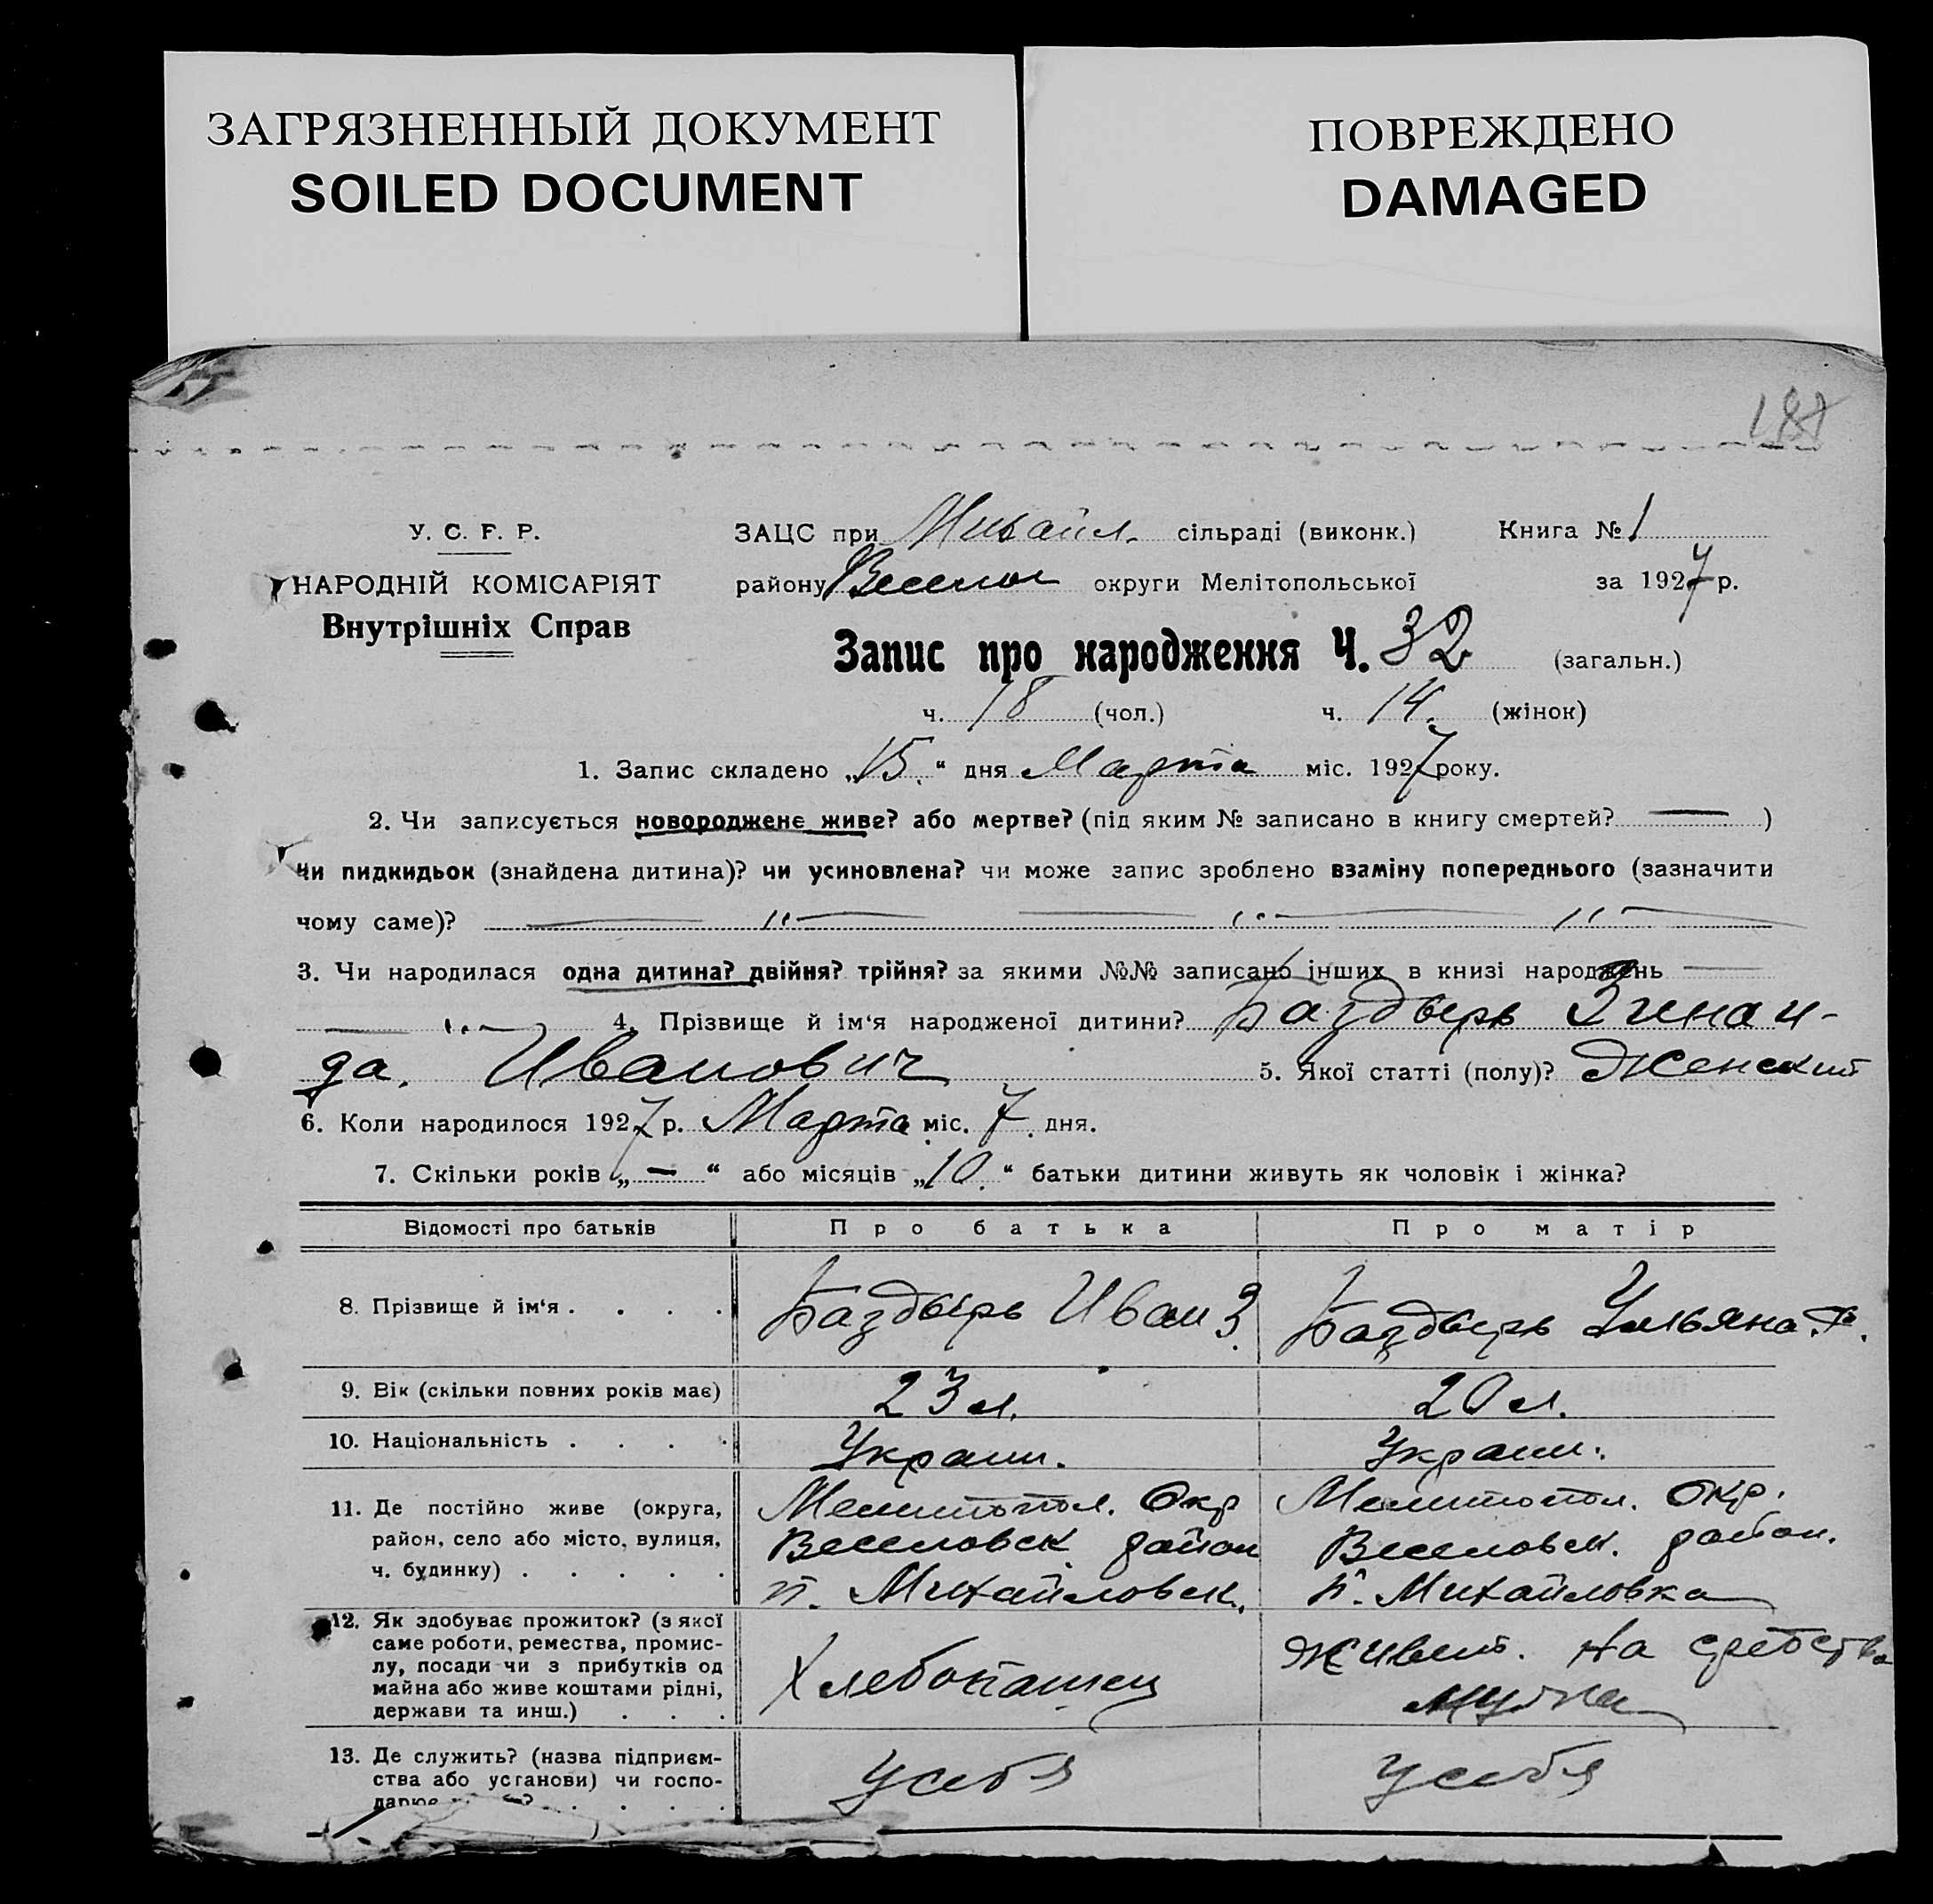 ЗАГРЯЗНЕННЫЙ ДОКУМЕНТ
SOILED DOCUMENT
ПОВРЕЖДЕНО
DAMAGED
У. С. Р. Р.
НАРОДНІЙ КОМІСАРІЯТ
Внутрішніх Справ
ЗАЦС при Михайл. сільраді (виконк.) Книга № 1
району Весело округи Мелітопольської за 1927 р.
Запис про народження Ч. 32 (загальн.)
ч. 18 (чол.) ч. 14. (жінок)
1. Запис складено „15.“ дня Марта міс. 1927 року.
2. Чи записується новороджене живе? або мертве? (під яким № записано в книгу смертей? — )
чи пидкидьок (знайдена дитина)? чи усиновлена? чи може запис зроблено взаміну попереднього (зазначити
чому саме)? — „ — — „ — „ —
3. Чи народилася одна дитина? двійня? трійня? за якими №№ записано інших в книзі народжень —
— „ — 4. Прізвище й ім‘я народженої дитини? Баздырь Зинаи-
да. Иванович 5. Якої статті (полу)? Женский
6. Коли народилося 1927 р. Марта міс. 7. дня.
7. Скільки років „—“ або місяців „10.“ батьки дитини живуть як чоловік і жінка?
Відомості про батьків Про батька Про матір
8. Прізвище й ім‘я . . . . Баздырь Иван З. Баздырь Ульяна
9. Вік (скільки повних років має) 23 л. 20 л.
10. Національність . . . . Украин. Украин.
11. Де постійно живе (округа, Мелитопол. Окр Мелитопол. Окр.
район, село або місто, вулиця, Веселовск район Веселовск. район.
ч. будинку) . . . . . п. Михайловск. п. Михайловка
12. Як здобуває прожиток? (з якої
саме роботи, ремества, промис-
лу, посади чи з прибутків од
майна або живе коштами рідні,
держави та инш.) . . . Хлебопашец Живет. На средства
мужа
13. Де служить? (назва підприєм-
ства або установи) чи госпо- У себя У себя
дарює